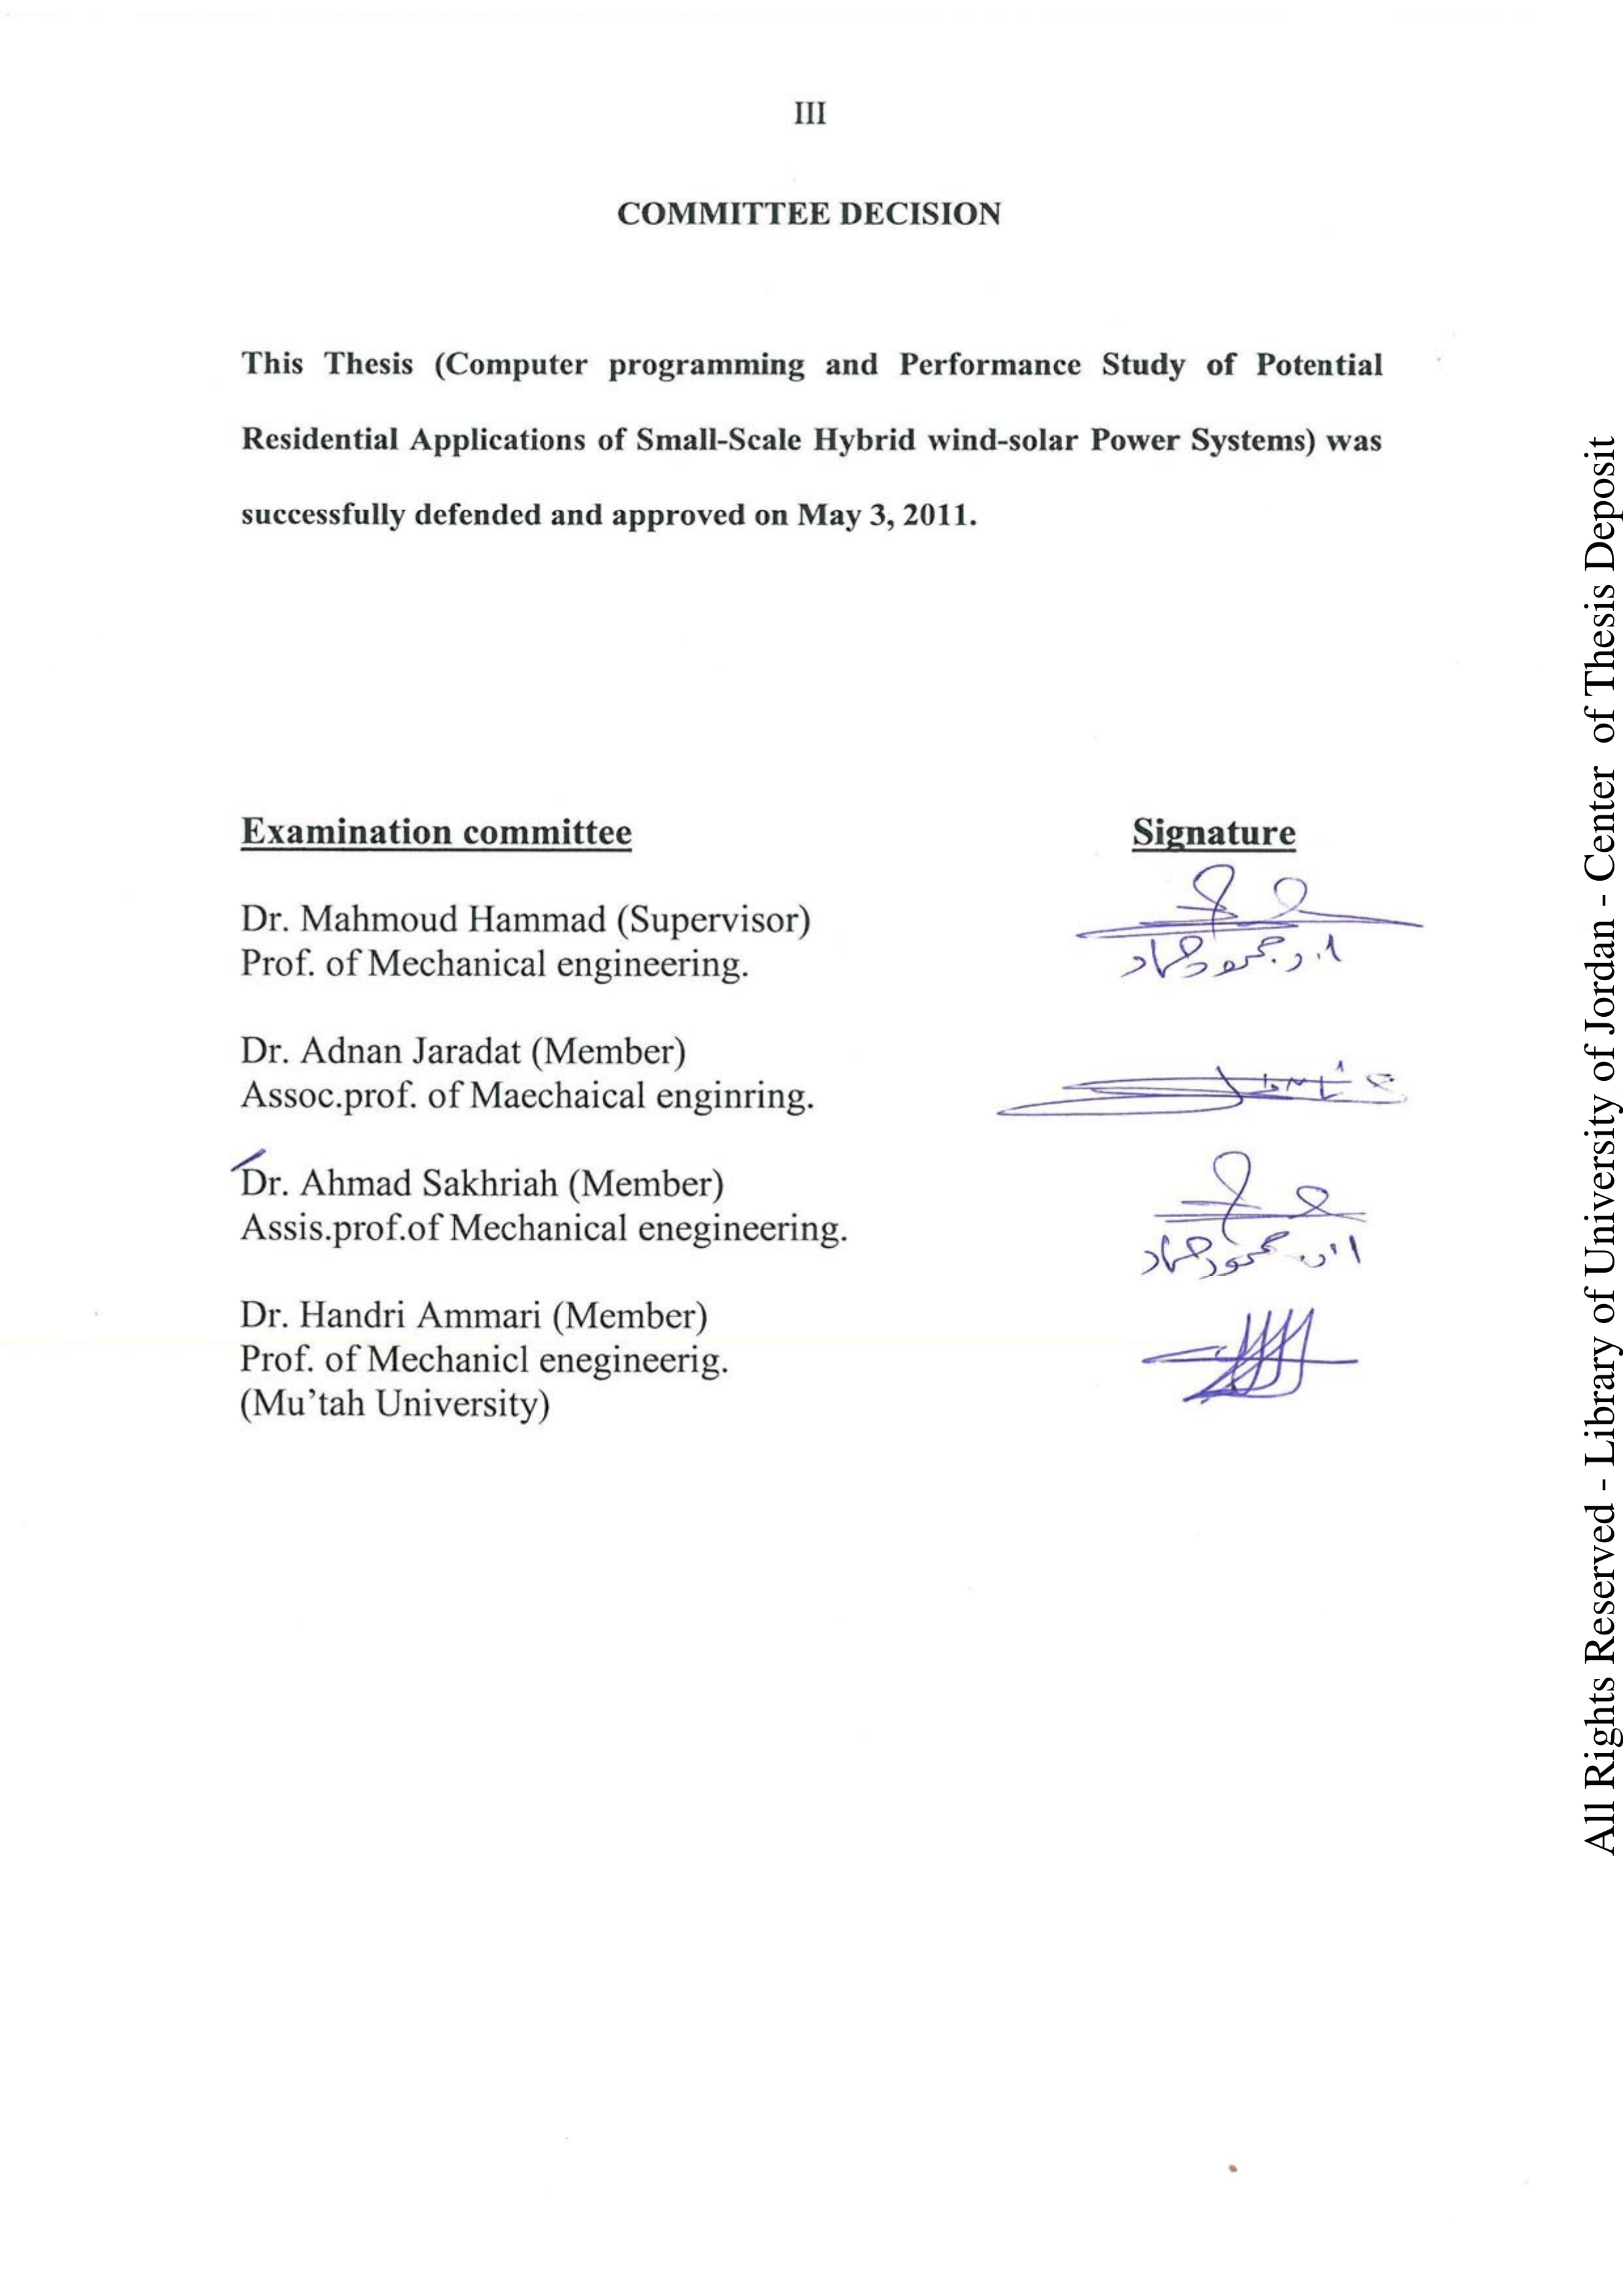 III
COMMITTEE DECISION
This Thesis (Computer programming and Performance Study of Potential
Residential Applications of Small-Scale Hybrid wind-solar Power Systems) was
successfully defended and approved on May 3, 2011.
Examination committee Signature
Dr. Mahmoud Hammad (Supervisor)
Prof. of Mechanical engineering.
محمود حماد
Dr. Adnan Jaradat (Member)
Assoc.prof. of Maechaical enginring.
Dr. Ahmad Sakhriah (Member)
Assis.prof.of Mechanical enegineering.
محمود حماد
Dr. Handri Ammari (Member)
Prof. of Mechanicl enegineerig.
(Mu’tah University)
All Rights Reserved - Library of University of Jordan - Center of Thesis Deposit